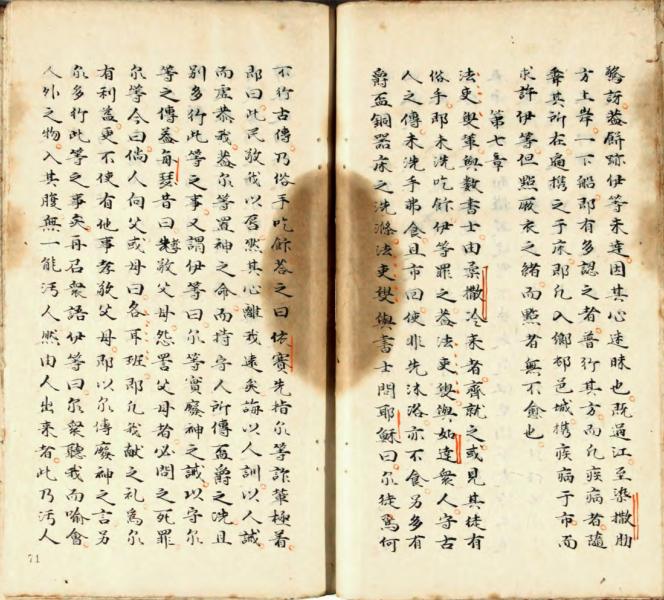 驚訝蓋餅跡伊等未達因其心迷昧也既過江至染撒肋
方上岸一下船即有多認之者普行其方而凡疾病者隨
其所在擕之于床即凡入鄉邨邑城擕疾病于市而
求許伊等但點厥衣之緒而點者無不愈也
第七章
法吏叟輩與數書士由柔撒冷來者齊就之或見其徒有
俗手即未洗吃餅伊等罪之蓋法吏叟與如達衆人守古
人之傳未洗手弗食且市回使非先沐浴亦不食另多有
爵盃銅器床之洗滌法吏叟與書士問耶穌曰尔徒為何
不行古傳乃俗手吃餅荅之曰依賽先指尔等詐輩極着
即曰此民敬我以唇然其心離我遠矣誨以人訓以人誡
而虛恭我蓋尔等置神之命而持守人所傳盃爵之洗且
別多行此等之事又謂伊等曰尔等實廢神之誡以守尔
等之傳蓋每瑟昔曰孝敬父母怨詈父母者必問之死罪
尔等今曰倘人向父或母曰各耳班即凡我獻之礼為尔
有利益更不使有他事孝敬父母即以尔傳廢神之言另
尔多行此等之事矣再召衆語伊等曰尔衆聽我而喻會
人外之物入其腹無一能污人然由人出來者此乃污人
71